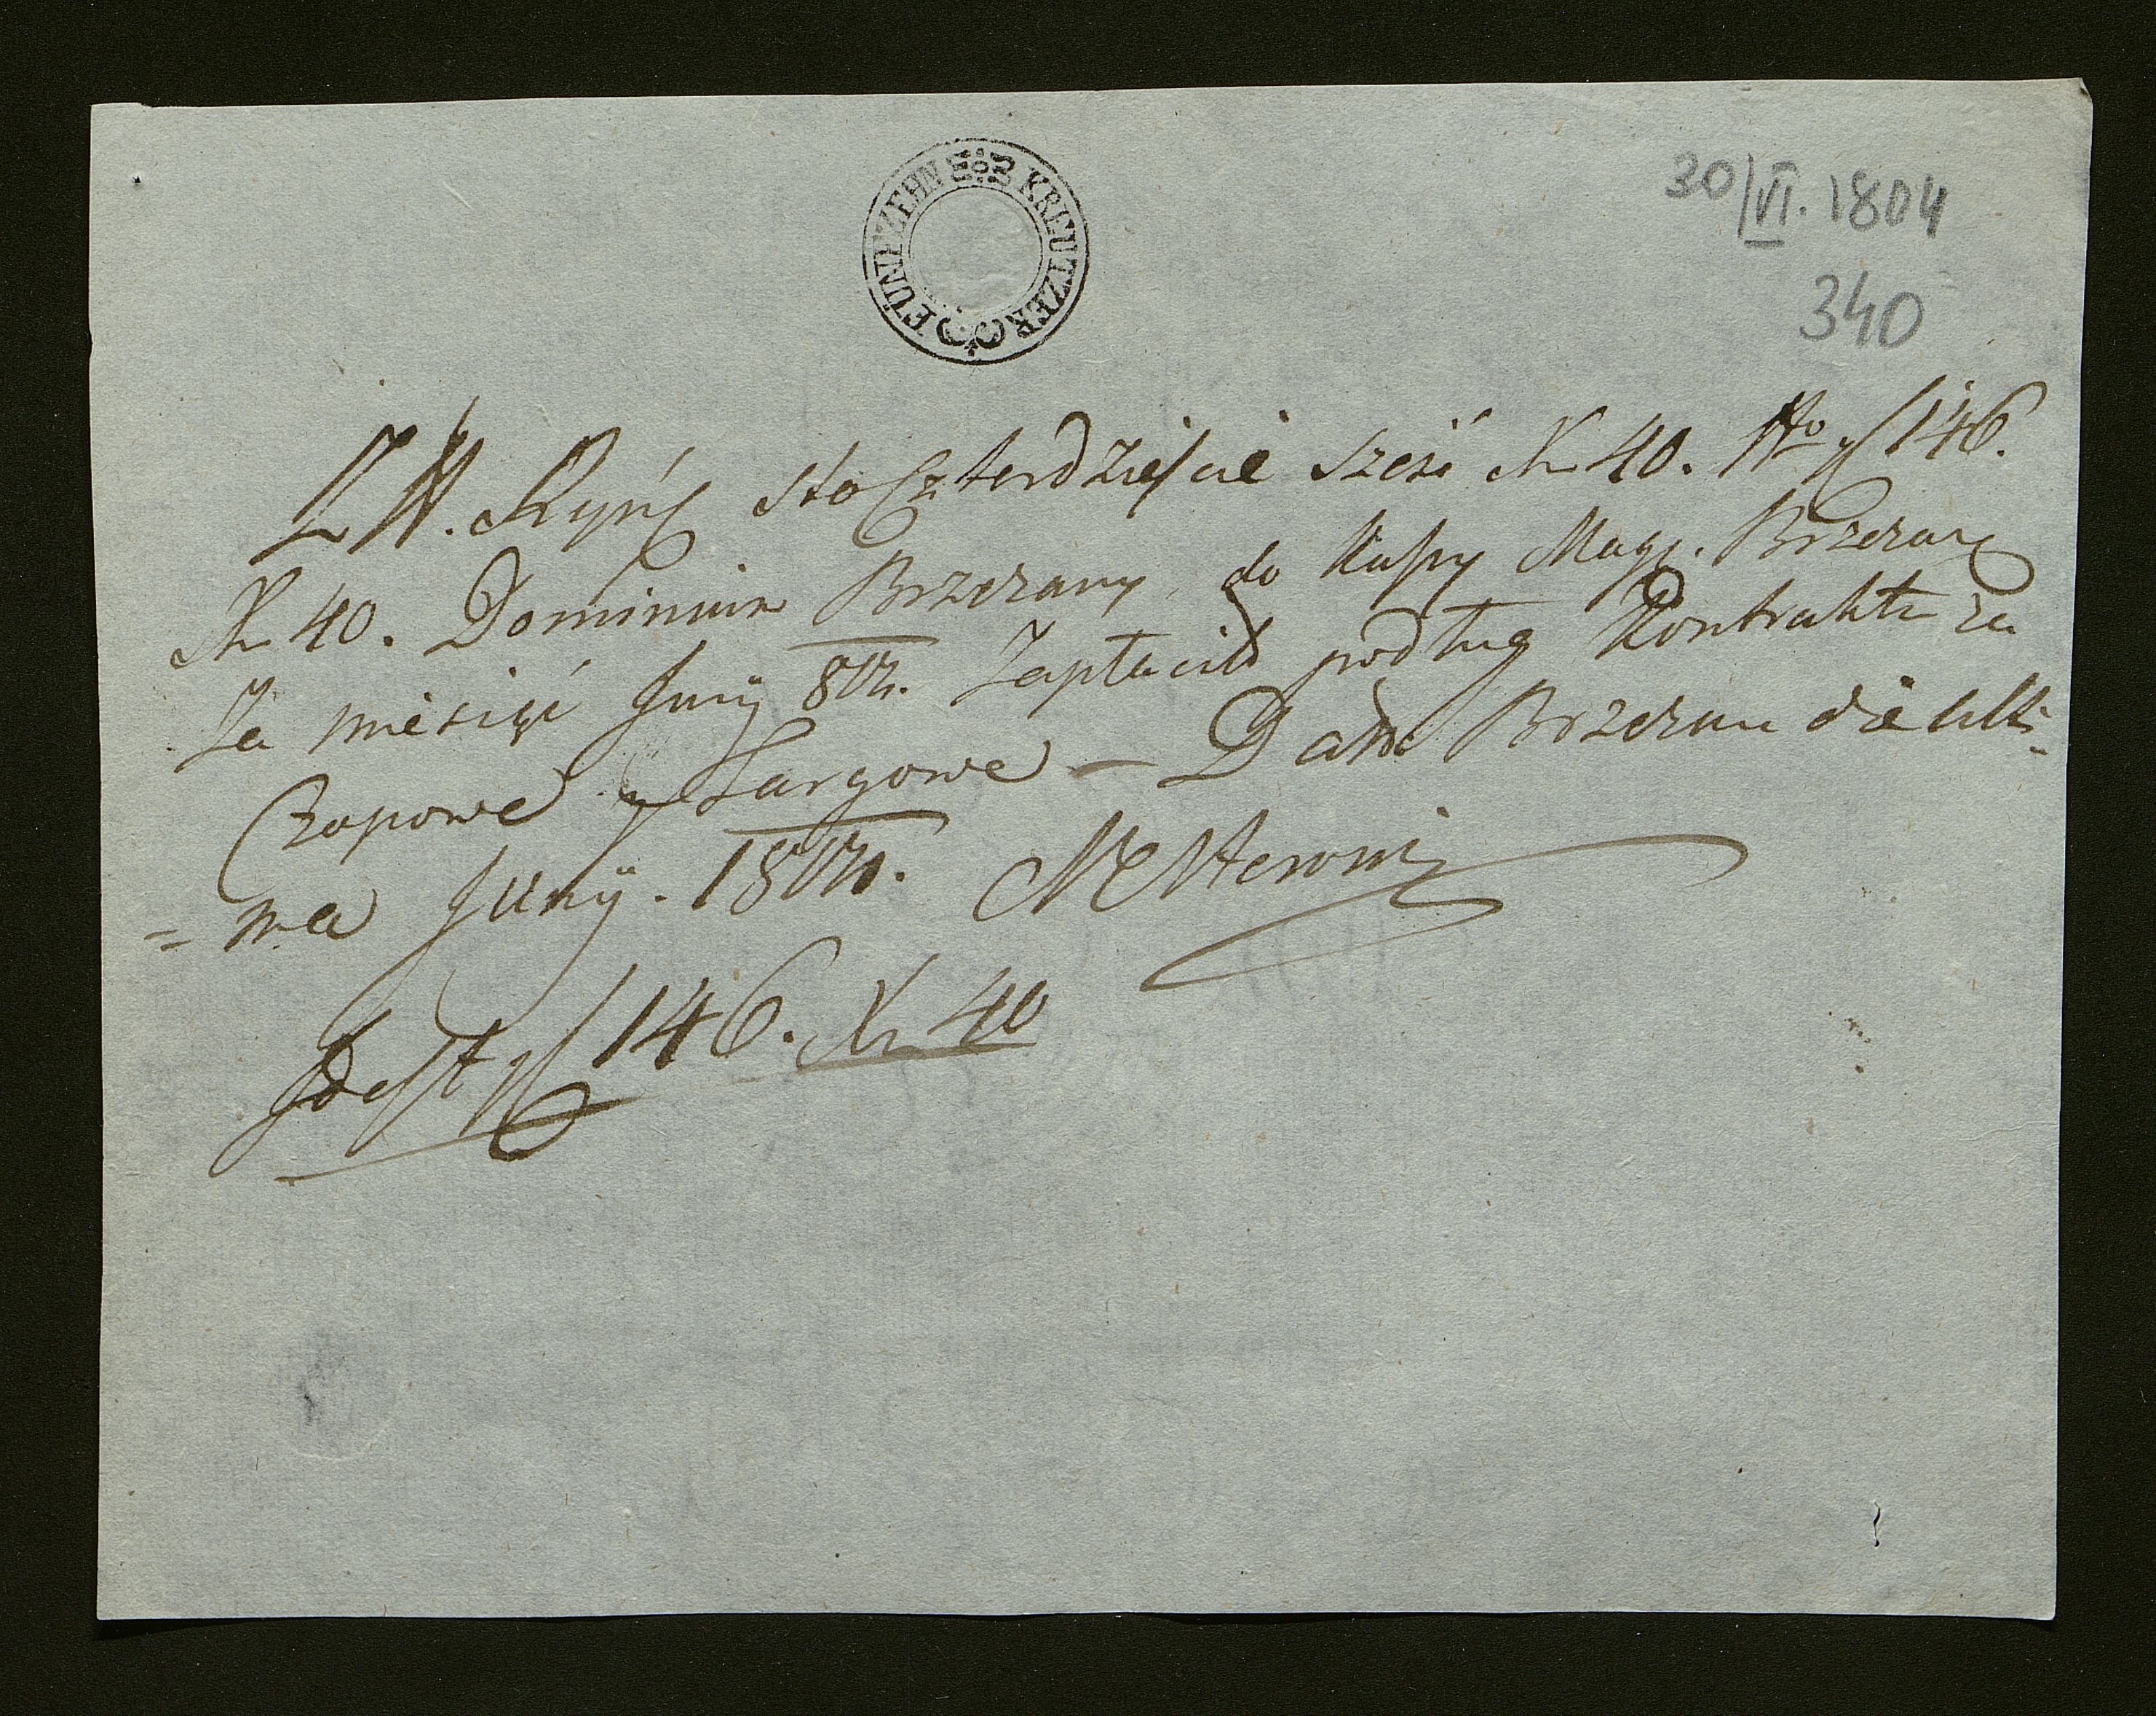 FÜNFZEHN KREUTZER
30/VI. 1804
340
Ryń sto Czterdzieście sześć Xr 40. No 146.
Xr 40. Dominium Brzezany do Kassy Mag. Brzezan
Za miesiąć Juny Zapłacił podług Kontraktu za
Czopowe y Targowe – Datt Brzezan die Ulti=
=ma Juny.
Idest 146. Xr 40